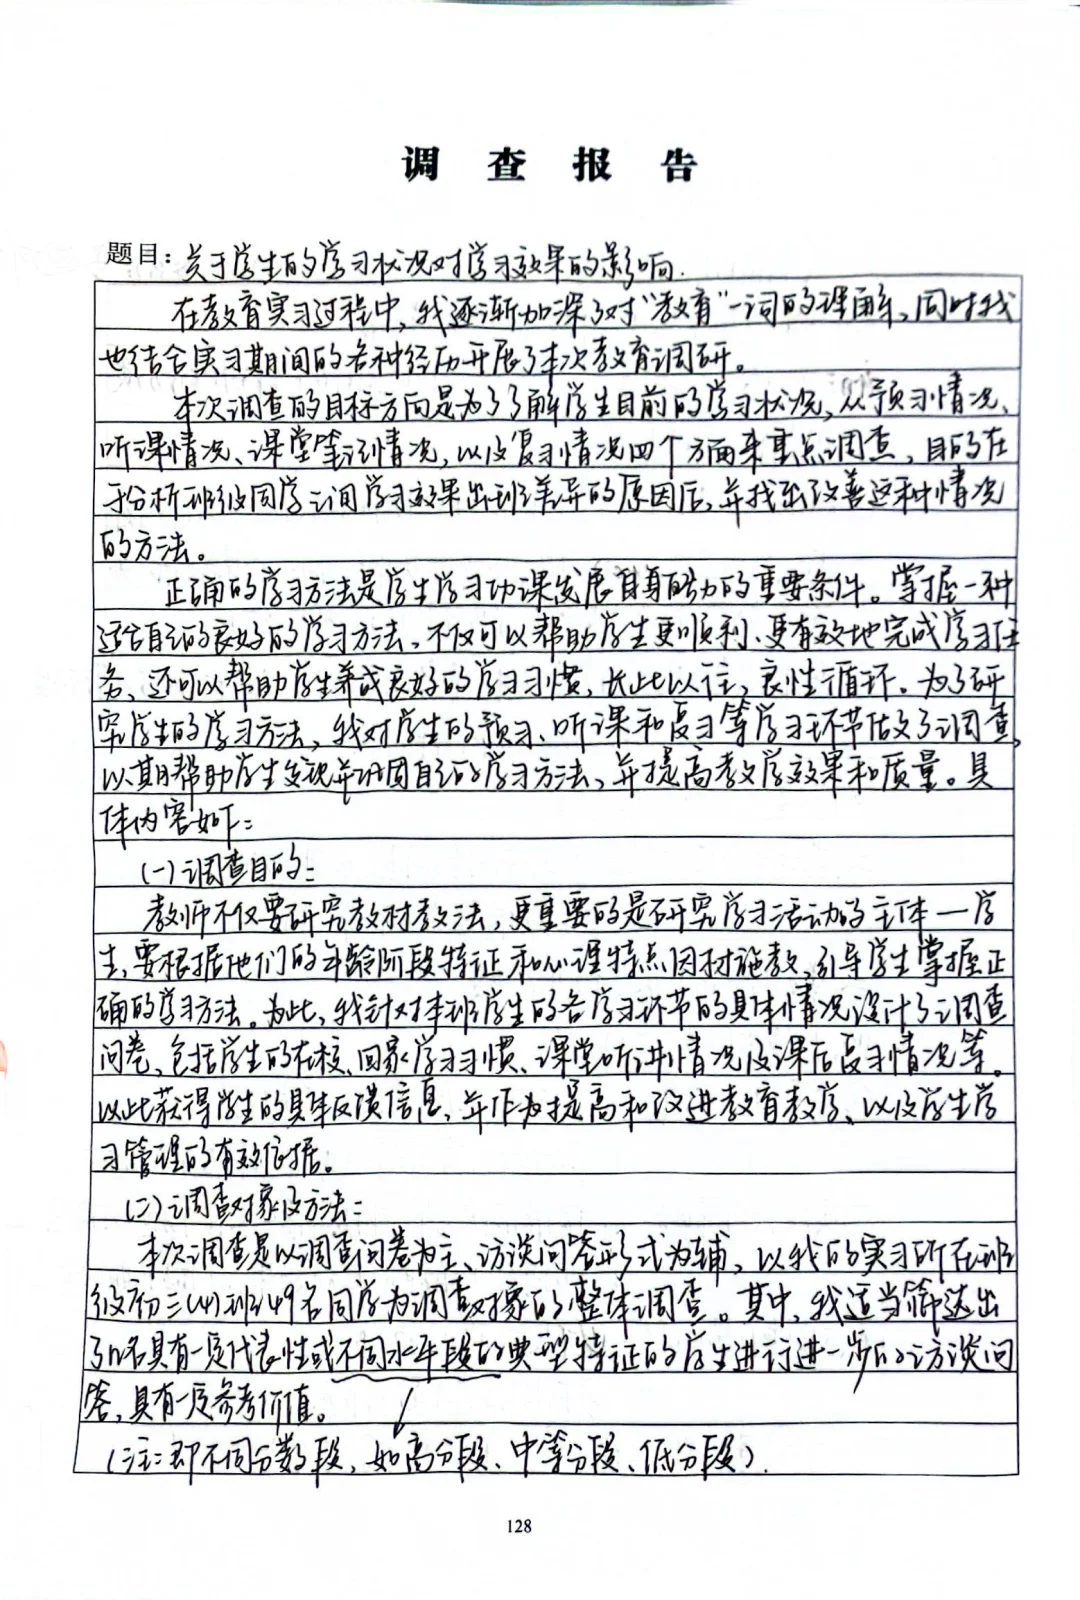 调查报告
题目：关于学生的学习状况对学习效果的影响.
在教育实习过程中，我逐渐加深了对“教育”一词的理解，同时我
也结合实习期间的各种经历开展了本次教育调研。
本次调查的目标方向是为了了解学生目前的学习状况，从预习情况、
听课情况、课堂笔记情况，以及复习情况四个方面来重点调查，目的在
于分析班级同学之间学习效果出现差异的原因后，并找出改善这种情况
的方法。
正确的学习方法是学生学习功课发展自身能力的重要条件。掌握一种
适合自己的良好的学习方法，不仅可以帮助学生更顺利、更有效地完成学习任
务，还可以帮助学生养成良好的学习习惯，长此以往，良性循环。为了研
究学生的学习方法，我对学生的预习、听课和复习等学习环节做了调查，
以期帮助学生发现并巩固自己的学习方法，并提高教学效果和质量。具
体内容如下：
(一)调查目的：
教师不仅要研究教材教法，更重要的是研究学习活动的主体一学
生，要根据他们的年龄阶段特征和心理特点因材施教，引导学生掌握正
确的学习方法。为此，我针对本班学生的各学习环节的具体情况设计了调查
问卷，包括学生的在校、回家学习习惯、课堂听讲情况及课后复习情况等。
以此获得学生的具体反馈信息，并作为提高和改进教育教学、以及学生学
习管理的有效依据。
(二)调查对象及方法：
本次调查是以调查问卷为主、访谈问答形式为辅，以我的实习所在班
级初三(4)班49名同学为调查对象的整体调查。其中，我适当筛选出
了几名具有一定代表性或不同水平段的典型特征的学生进行进一步的访谈问
答，具有一定参考价值。
(注：即不同分数段，如高分段、中等分段、低分段).
128